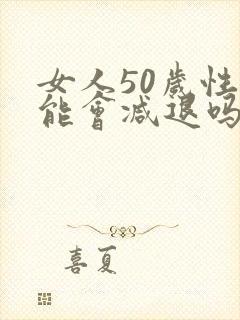 女人50歲性
能會减退吗
喜夏